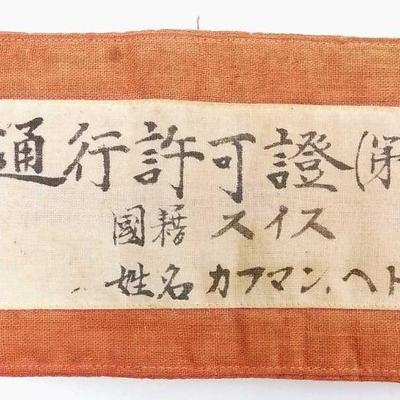 通行許可證
國籍 スイス
姓名 カフマン、ヘト